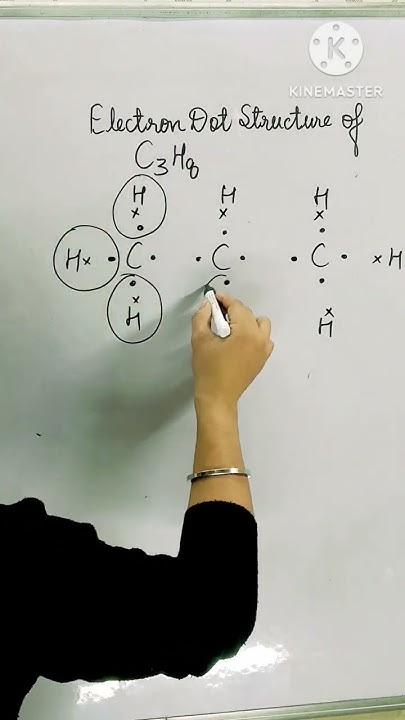 K
KINEMASTER
Electron Dot Structure of
C3H8
H H H
x x x
• • •
Hx • C • • C • • C • xH
• • •
x x
H H